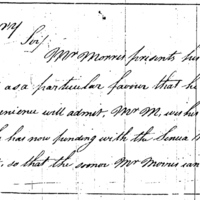 ny
Sir,
Mr Morris presents his
as a particular favor that he
enience will admit, Mr M. wishes
has now pending with the Seneca
, so that the sooner Mr Morris can